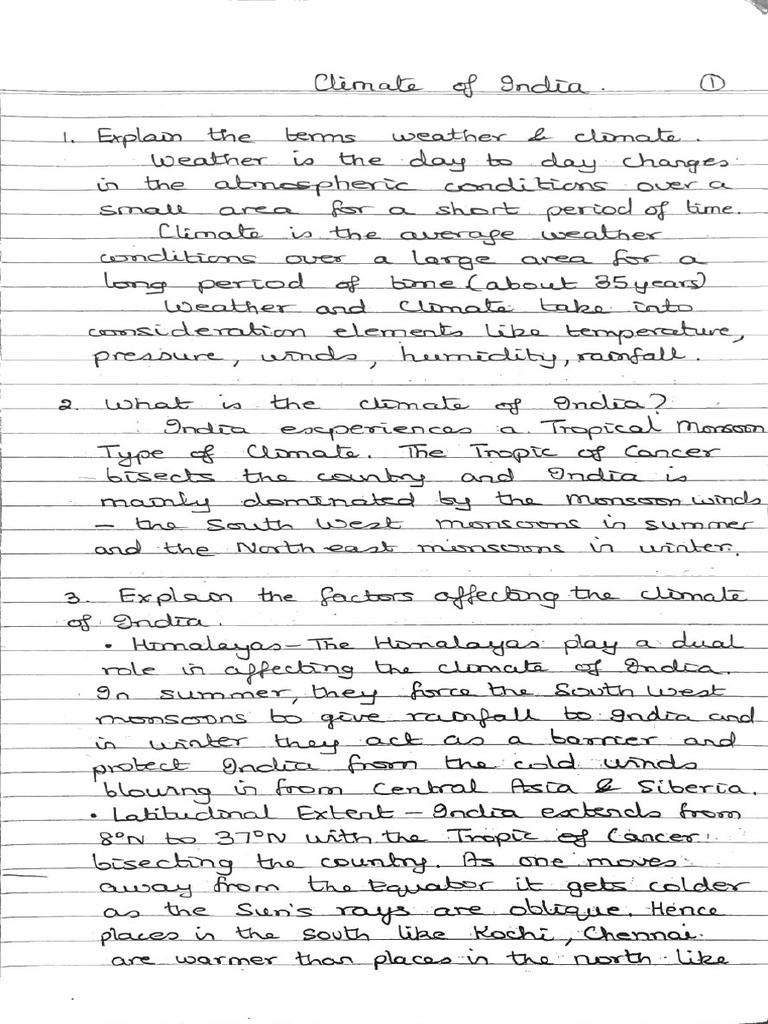 Climate of India. 1
1. Explain the terms weather & climate.
Weather is the day to day changes
in the atmospheric conditions over a
small area for a short period of time.
Climate is the average weather
conditions over a large area for a
long period of time (about 35 years)
Weather and Climate take into
consideration elements like temperature,
pressure, winds, humidity, rainfall.
2. What is the climate of India?
India experiences a Tropical Monsoon
Type of Climate. The Tropic of Cancer
bisects the country and India is
mainly dominated by the monsoon winds
- the South West monsoons in summer
and the North east monsoons in winter.
3. Explain the factors affecting the climate
of India.
• Himalayas - The Himalayas play a dual
role in affecting the climate of India.
In summer, they force the South West
monsoons to give rainfall to India and
in winter they act as a barrier and
protect India from the cold winds
blowing in from Central Asia & Siberia.
• Latitudinal Extent - India extends from
8°N to 37°N with the Tropic of Cancer
bisecting the country. As one moves
away from the Equator it gets colder
as the Sun's rays are oblique. Hence
places in the south like Kochi, Chennai
are warmer than places in the north like